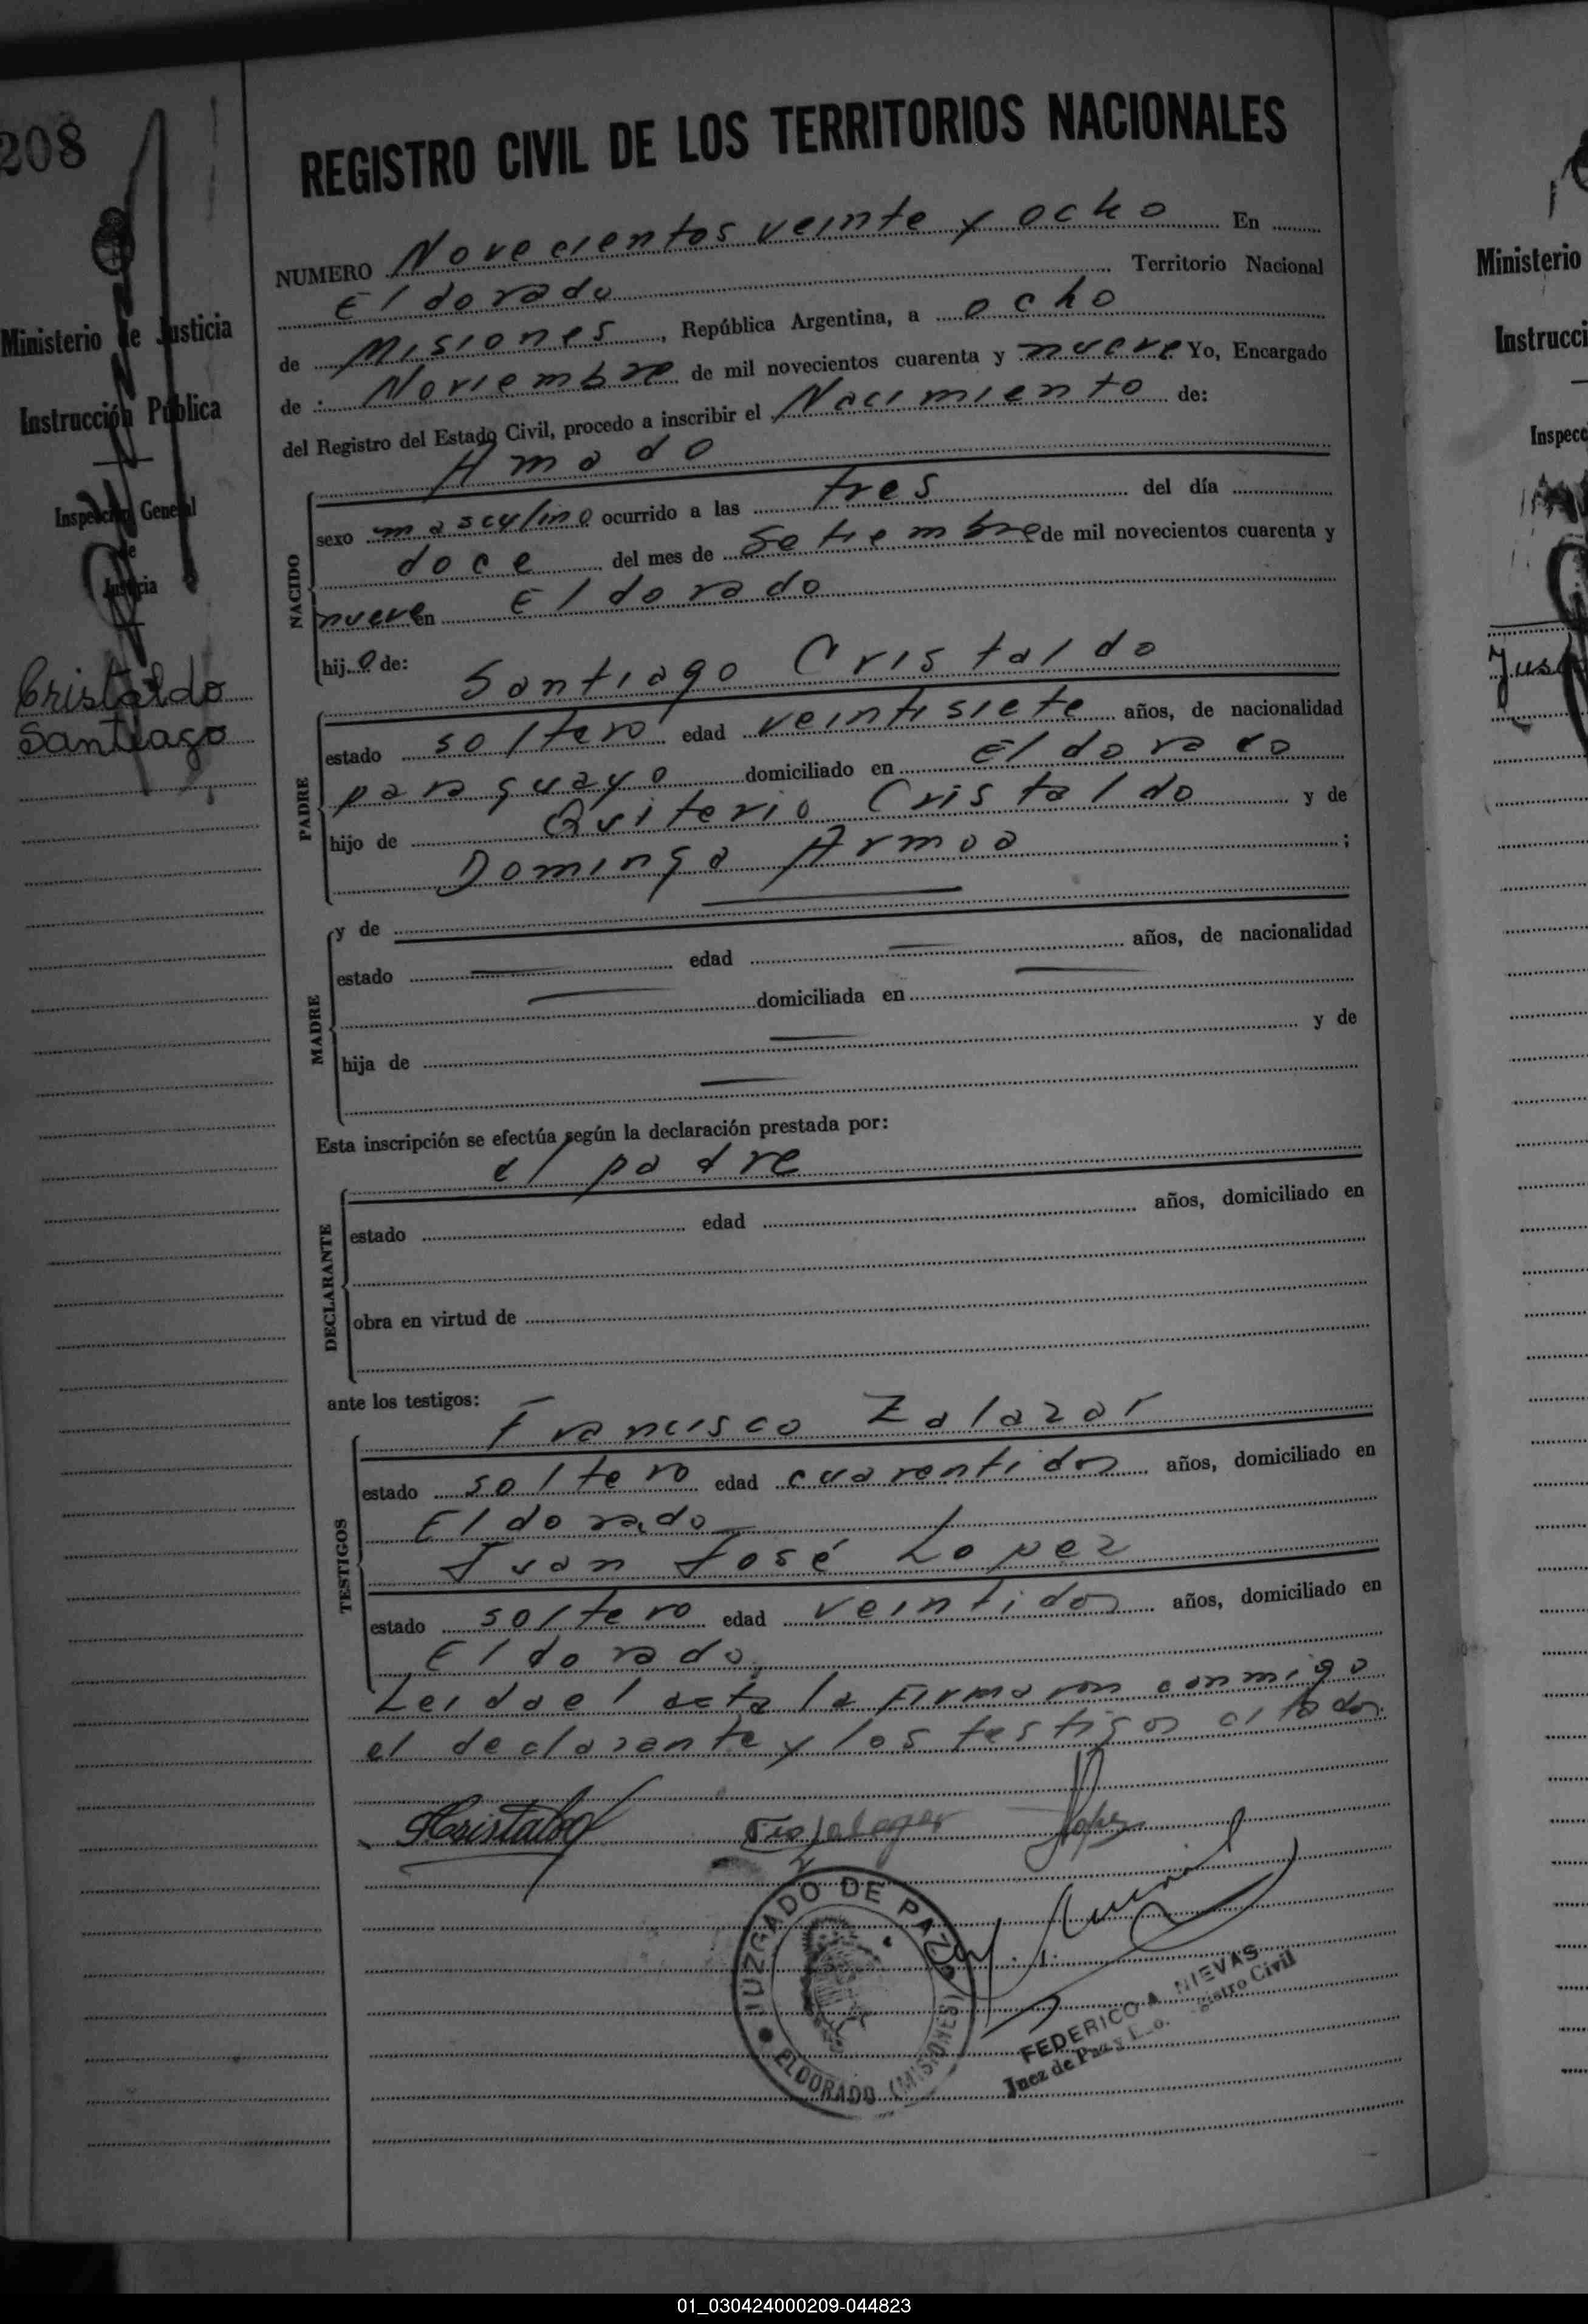 208
Ministerio de Justicia
Instrucción Pública
Inspección General
de
Justicia
Cristaldo
Santiago
REGISTRO CIVIL DE LOS TERRITORIOS NACIONALES
NUMERO Novecientos veinte y ocho En
Eldorado Territorio Nacional
de Misiones, República Argentina, a ocho
de Noviembre de mil novecientos cuarenta y nueve Yo, Encargado
del Registro del Estado Civil, procedo a inscribir el Nacimiento de:
Amado
NACIDO
sexo masculino ocurrido a las tres del día
doce del mes de Setiembre de mil novecientos cuarenta y
nueve en Eldorado
hij o de:
Santiago Cristaldo
PADRE
estado soltero edad veintisiete años, de nacionalidad
paraguayo domiciliado en Eldorado
hijo de Quiterio Cristaldo y de
Dominga Armoa ;
MADRE
y de
estado edad años, de nacionalidad
domiciliada en
hija de y de
Esta inscripción se efectúa según la declaración prestada por:
el padre
DECLARANTE
estado edad años, domiciliado en
obra en virtud de
ante los testigos:
Francisco Zalazar
TESTIGOS
estado soltero edad cuarentidos años, domiciliado en
Eldorado
Juan José Lopez
estado soltero edad veintidos años, domiciliado en
Eldorado.
Leida el acta la firmaron conmigo
el declarante y los testigos citados.
SCristaldo Lopez
JUZGADO DE PAZ
ELDORADO (MISIONES)
FEDERICO A. NIEVAS
Juez de Paz y Registro Civil
Ministerio
Instrucci
Inspecc
Jus
01_030424000209-044823